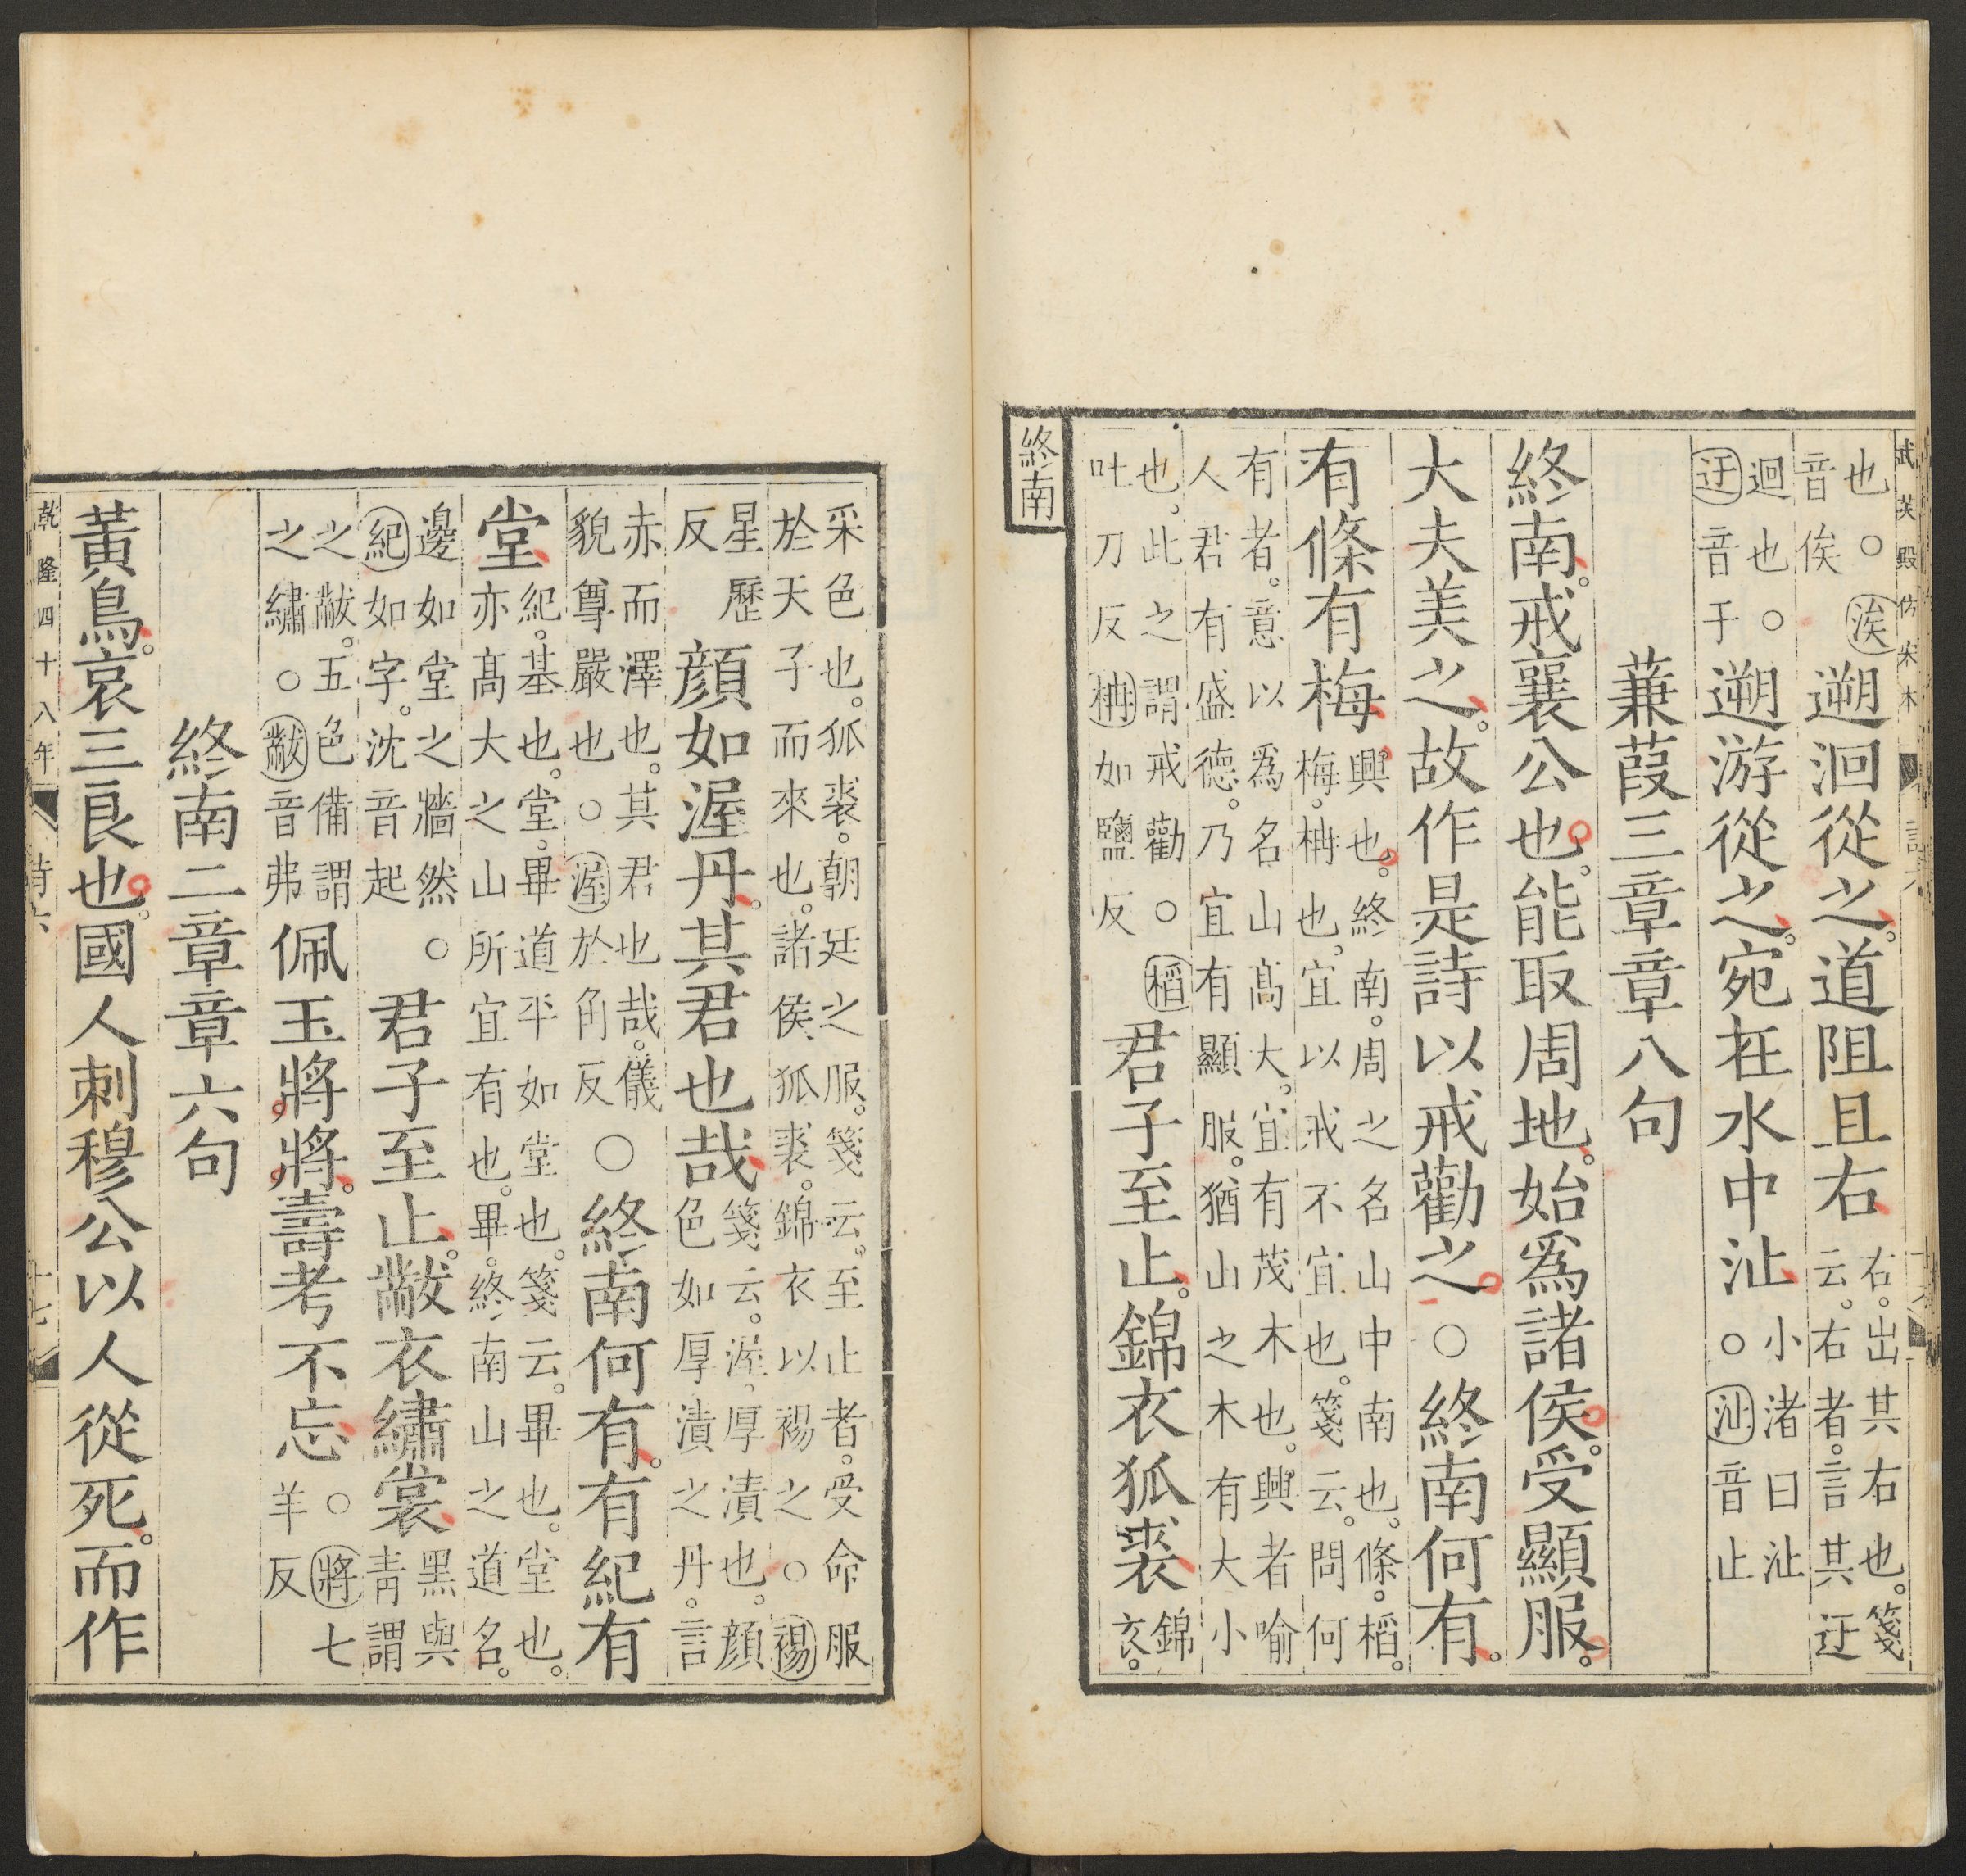 武英殿仿宋本
也。○涘音俟遡洄從之。道阻且右右。出其右也。箋云。右者。言其迂
迴也。○迂音于遡游從之。宛在水中沚小渚曰沚○沚音止
蒹葭三章章八句
終南。戒襄公也。能取周地。始爲諸侯。受顯服。
大夫美之。故作是詩以戒勸之○終南何有。
有條有梅興也。終南。周之名山中南也。條。槄。梅。枏也。宜以戒不宜也。箋云。問何
有者。意以爲名山高大。宜有茂木也。興者喻人君有盛德。乃宜有顯服。猶山之木有大小
也。此之謂戒勸○槄吐刀反枏如鹽反君子至止。錦衣狐裘錦衣。
終南
采色也。狐裘。朝廷之服。箋云。至止者。受命服於天子而來也。諸侯狐裘。錦衣以裼之○裼
星歷反顏如渥丹。其君也哉箋云。渥。厚漬也。顏色如厚漬之丹。言
赤而澤也。其君也哉。儀貌尊嚴也○渥於角反○終南何有。有紀有
堂紀。基也。堂。畢道平如堂也。箋云。畢也。堂也。亦高大之山所宜有也。畢。終南山之道名。
邊如堂之牆然○紀如字。沈音起君子至止。黻衣繡裳黑與青謂
之黻。五色備謂之繡○黻音弗佩玉將將。壽考不忘○將七羊反
終南二章章六句
黃鳥。哀三良也。國人刺穆公以人從死。而作
乾隆四十八年 詩六 十七